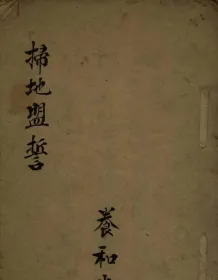 掃地盟誓
養和